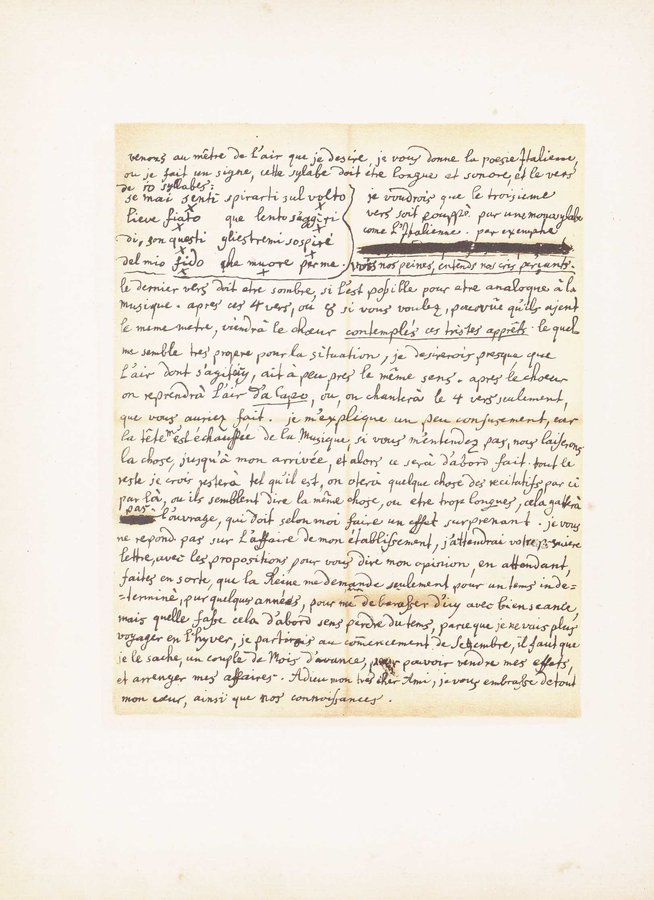 venons au mêtre de l'air que je desire, je vous donne la poesie Italienne,
ou je fait un signe, cette sylabe doit etre longue et sonore, et le vers
de 10 syllabes:
se mai senti spirarti sul volto
lieve fiato che lento s'aggiri
di, son questi gli estremi sospiri
del mio fido che muore per me.
je voudrois que le troisieme
vers soit coupé par une monosylabe
come l'Italienne. par exemple
vois nos peines, entends nos cris perçants.
le dernier vers doit etre sombre, si l'est possille pour etre analogue à la
musique. apres ces 4 vers, ou 8 si vous voulez, pourvûe qu'ils ajent
le meme metre, viendrà le chœur contemplés ces tristes apprêts. le quel
me semble tres propre pour la situation, je desirerois presque que
l'air dont s'agit, ait à peu pres le même sens. apres le choeur
on reprendrà l'air da Capo, ou, ou chanterà le 4 vers seulement,
que vous auriez fait. je m'explique un peu confusement, car
la tête m'est échauffée de la Musique, si vous m'entendez pas, nous laiserons
la chose, jusqu'à mon arrivée, et alors ce serà d'abord fait. tout le
reste je crois resterà tel qu'il est, on oterà quelque chose des recitatifs par ci
par là, ou ils semblent dire la même chose, ou etre trop longues, cela gatterà
pas l'ouvrage, qui doit selon moi faire un effet surprenant. je vous
ne repond pas sur l'affaire de mon établissement, j'attendrai votre premiere
lettre, avec les propositions pour vous dire mon opinion, en attendant,
faites en sorte, que la Reine me demande seulement pour un tems inde=
=terminè, pur quelques années, pour me debarasser d'icy avec bienseance,
mais quelle fasse cela d'abord sens perdre du tens, parce que je ne vais plus
voyager en l'hyver, je partirois au comencement de Septembre, il faut que
je le sache, un couple de Mois d'avance, pour pouvoir vendre mes effets,
et arranger mes affaires. Adieu mon tres cher Ami, je vous embrasse de tout
mon cœur, ainsi que nos connoissances.